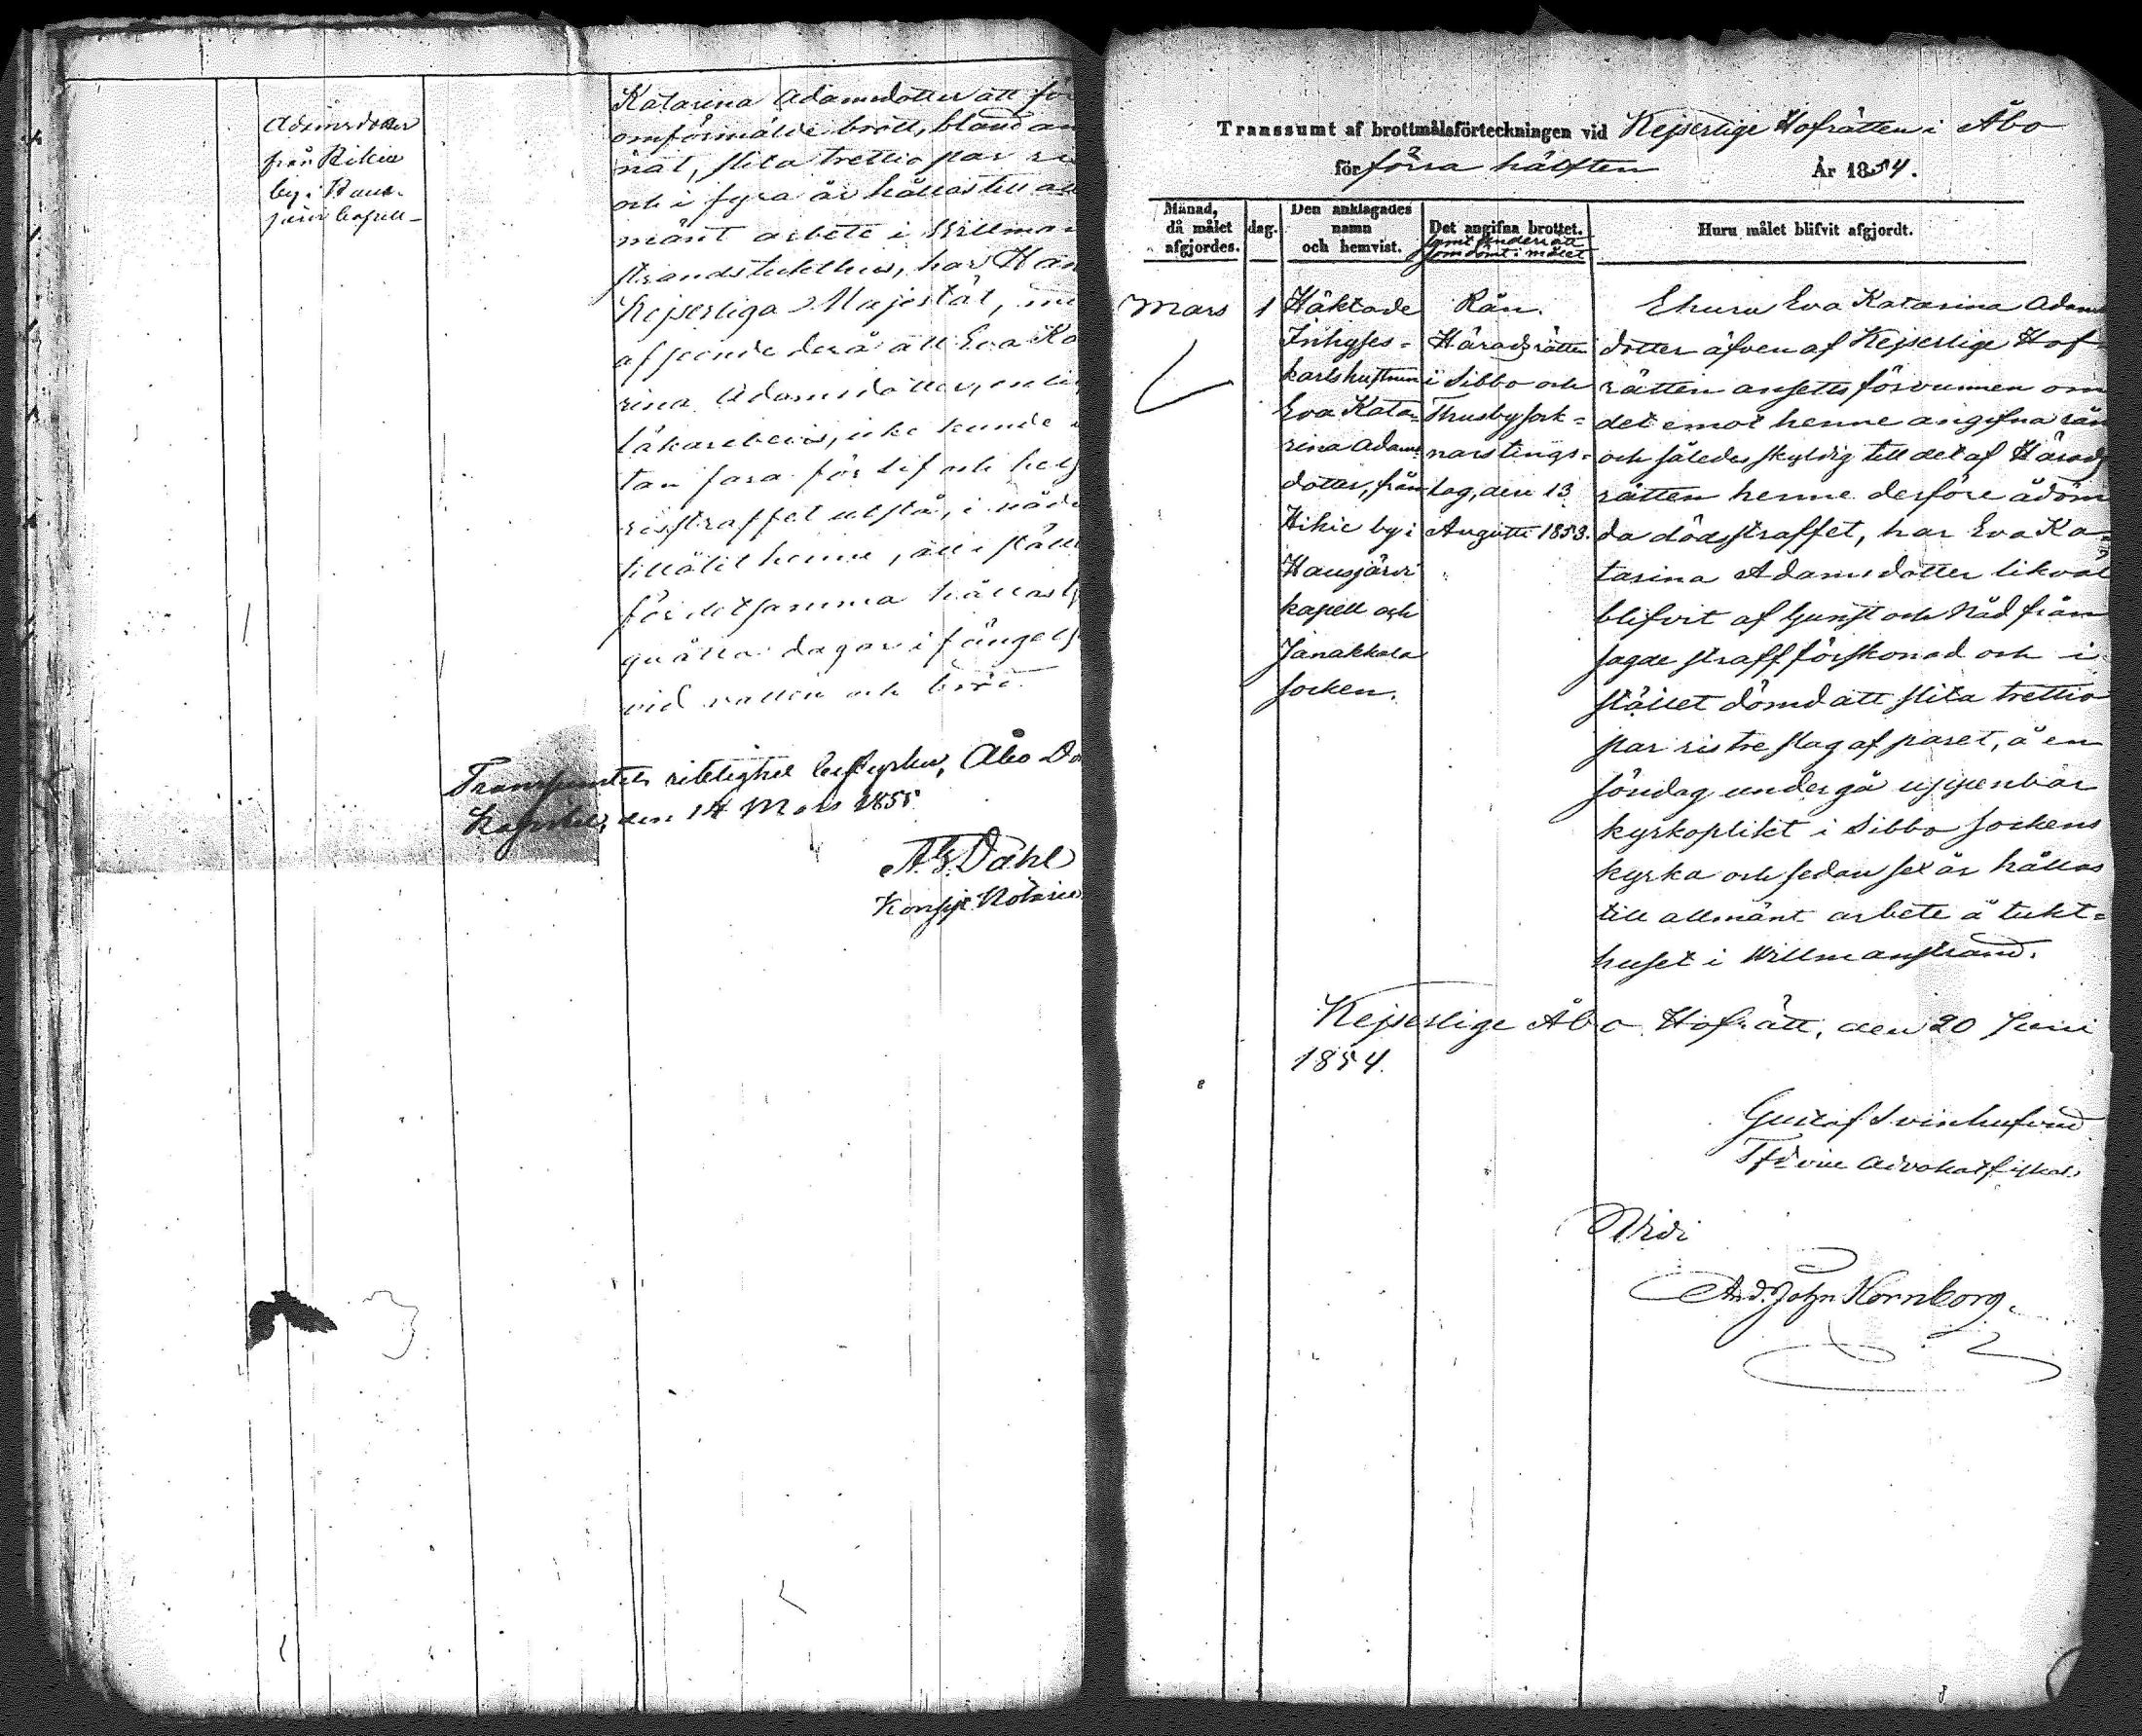 Adamsdotter
från Hikiä
by i Haus-
järvi kapell
Katarina Adamsdotter att för
omförmälde brott, bland an
nat, slita trettio par ris
och i fyra år hållas till all
mänt arbete i Willman
strands tukthus, har Hans
Kejserliga Majestät, med
afseende derå att Eva Ka
rina Adamsdotter, enligt
läkarebevis, icke kunde u
tan fara för lif och hels
risstraffet utstå, i nåder
tillåtit henne, att i stället
för detsamma hållas t
guåtta dagar i fängelse
vid vatten och bröd.
Transsumtets riktighet bestyrker, Åbo Dom
Kapitel, den 14 Mars 1855.
A. G. Dahl
Konsist. Notarie
Transsumt af brottmålsförteckningen vid Kejserlige Hofrätten i Åbo
för förra hälften År 1854.
Månad, då målet afgjordes. dag. Den anklagades namn och hemvist. Det angifna brottet. samt Underrätt som dömt i målet Huru målet blifvit afgjordt.
Mars 1
Häktade
Inhyses-
karlshustrun
Eva Kata-
rina Adams
dotter, från
Hikie by i
Hausjärvi
kapell och
Janakkala
socken.
Rån.
Häradsrätten
i Sibbo och
Thusby sock-
nars tings-
lag, den 13
Augusti 1853.
Ehuru Eva Katarina Adams
dotter äfven af Kejserlige Hof-
rätten ansetts förvunnen om
det emot henne angifna rån
och således skyldig till det af Härads
rätten henne derföre ådöm
da dödsstraffet, har Eva Ka-
tarina Adamsdotter likväl
blifvit af Gunst och Nåd från
sagde straff förskonad och i
stället dömd att slita trettio
par ris tre slag af paret, å en
söndag undergå uppenbar
kyrkoplikt i Sibbo sockens
kyrka och sedan sex år hållas
till allmänt arbete å tukt-
huset i Willmanstrand.
Kejserlige Åbo Hofrätt, den 20 Juni
1854.
Gustaf Svinhufvud
Tf vice Advokatfiskal.
Vidi
And. John Hornborg.